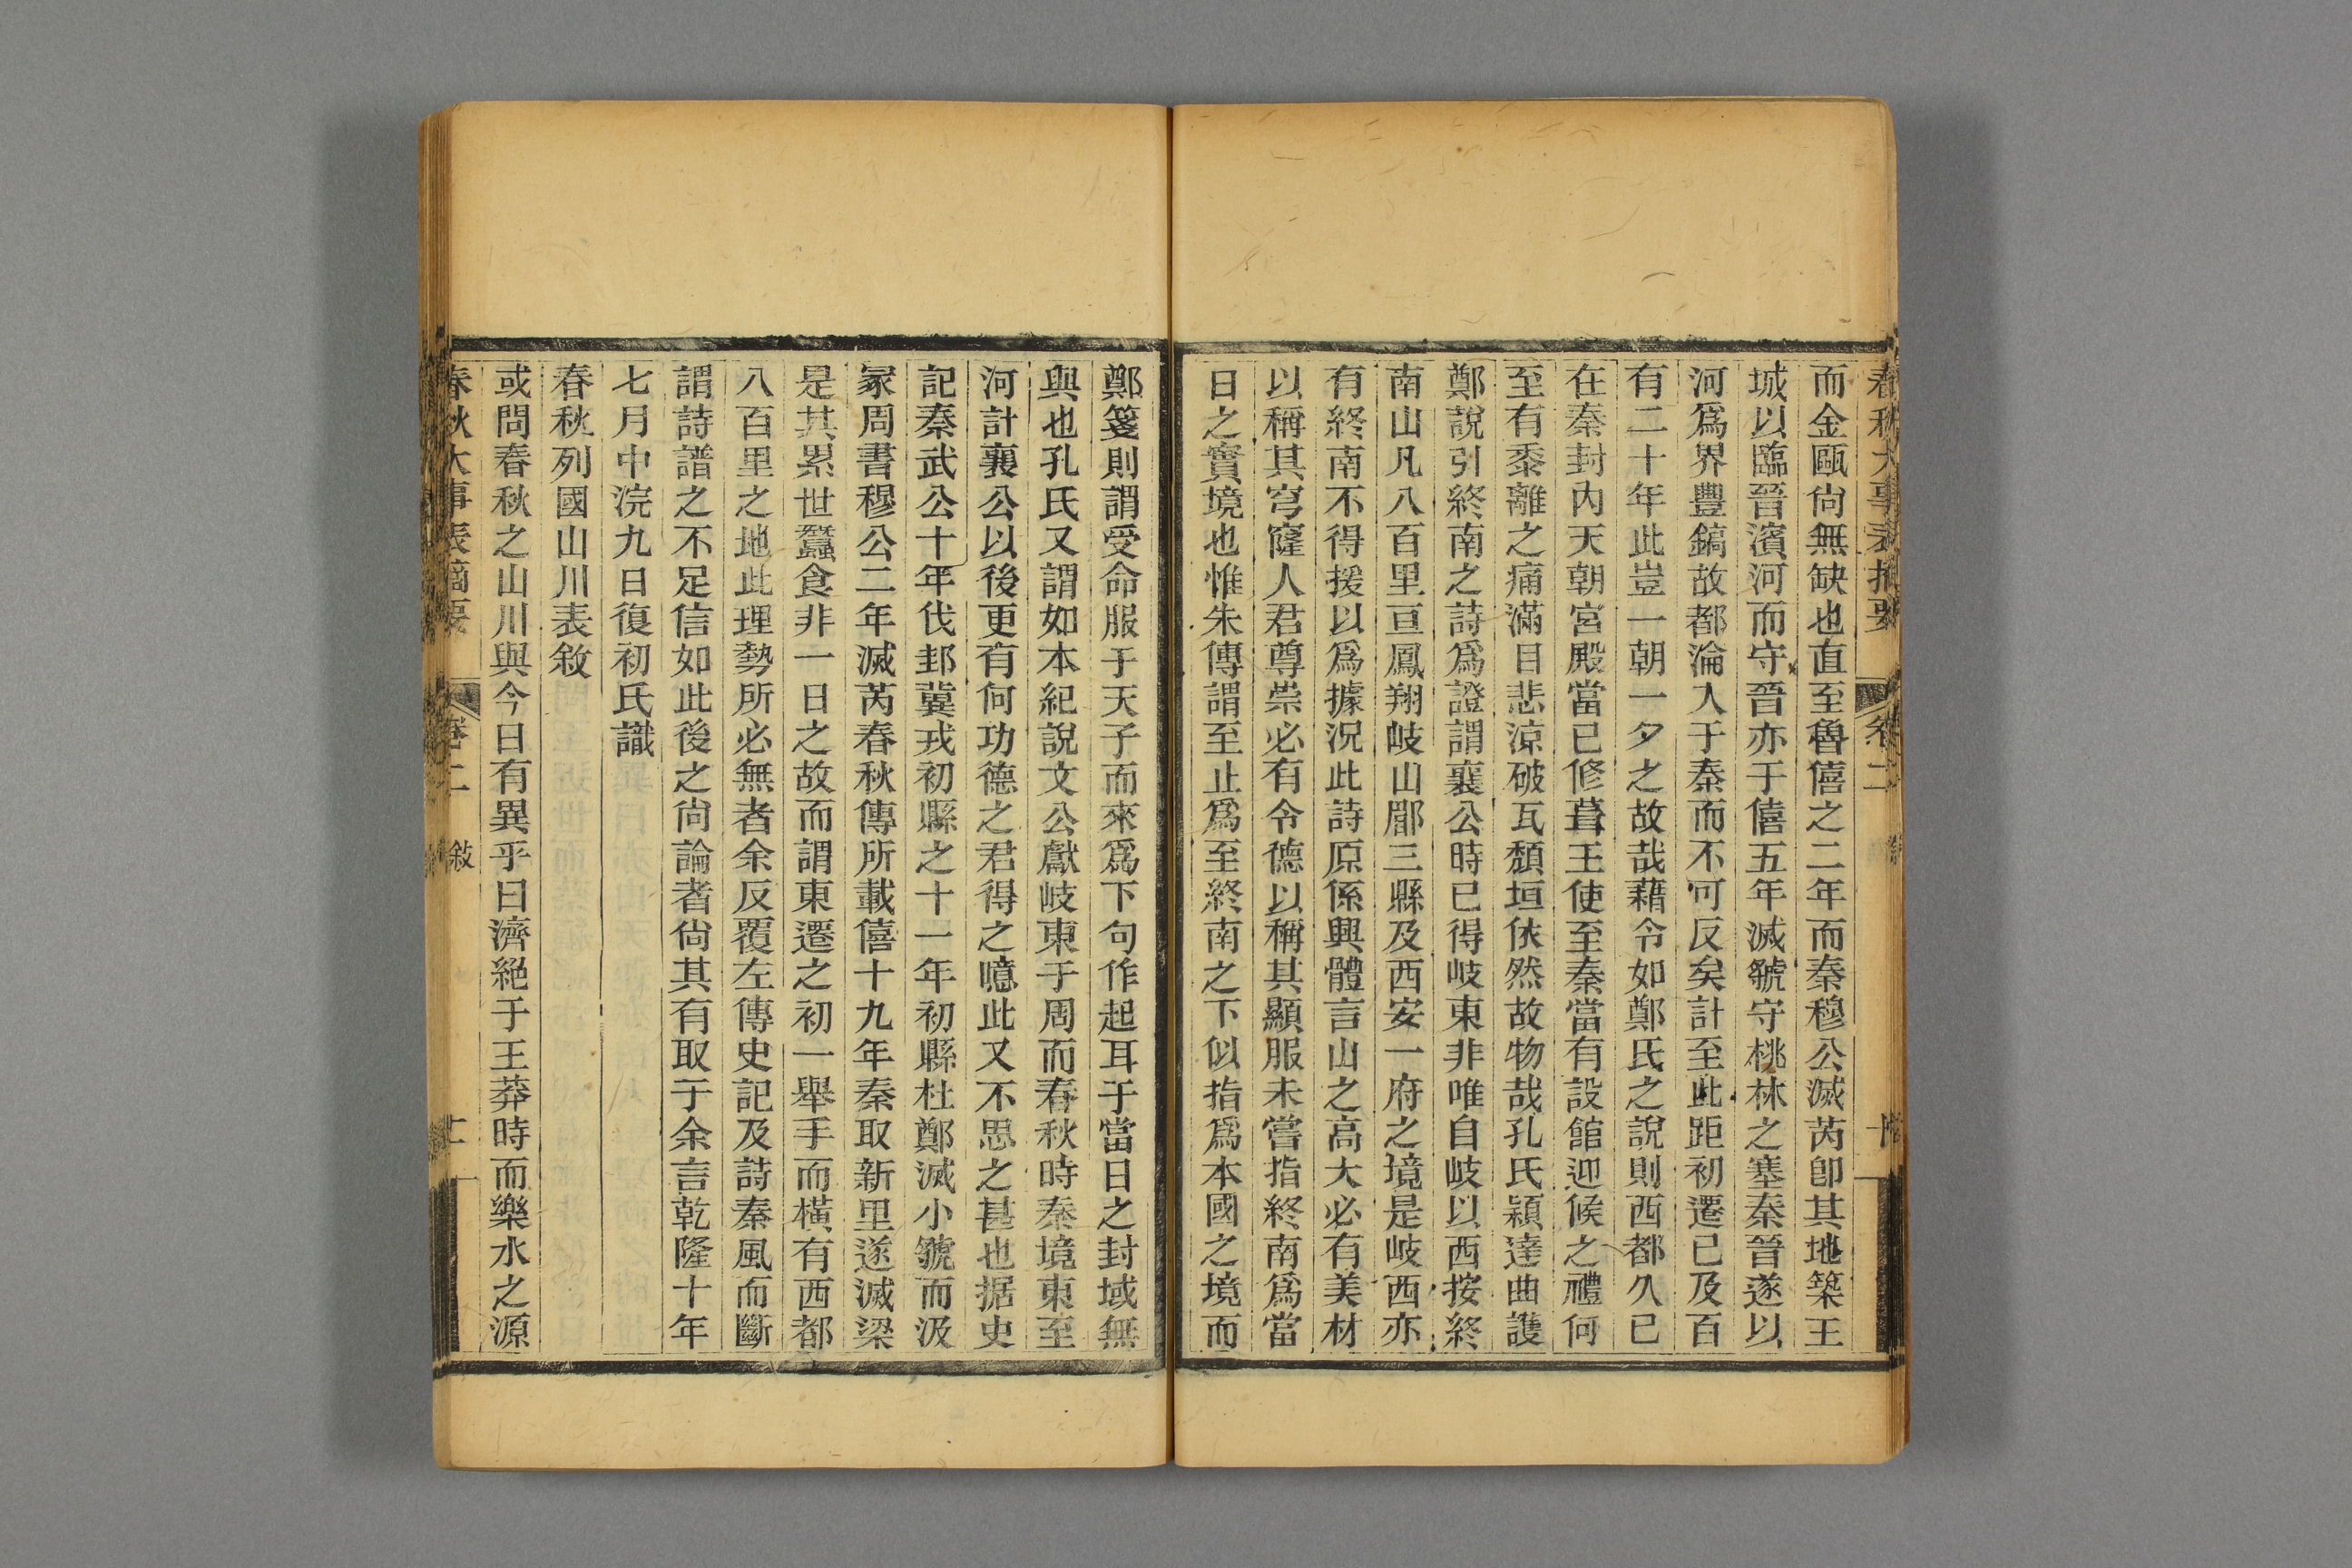 春秋大事表摘要 卷二
而金甌尙無缺也直至魯僖之二年而秦穆公滅芮卽其地築王
城以臨晉濱河而守晉亦于僖五年滅虢守桃林之塞秦晉遂以
河爲界豐鎬故都淪入于秦而不可反矣計至此距初遷已及百
有二十年此豈一朝一夕之故哉藉令如鄭氏之說則西都久已
在秦封內天朝宮殿當已修葺王使至秦當有設館迎候之禮何
至有黍離之痛滿目悲涼破瓦頹垣依然故物哉孔氏穎達曲護
鄭說引終南之詩爲證謂襄公時已得岐東非唯自岐以西按終
南山凡八百里亘鳳翔岐山郿三縣及西安一府之境是岐西亦
有終南不得援以爲據況此詩原係興體言山之高大必有美材
以稱其穹窿人君尊崇必有令德以稱其顯服未嘗指終南爲當
日之實境也惟朱傳謂至止爲至終南之下似指爲本國之境而
鄭箋則謂受命服于天子而來爲下句作起耳于當日之封域無
與也孔氏又謂如本紀說文公獻岐東于周而春秋時秦境東至
河計襄公以後更有何功德之君得之噫此又不思之甚也据史
記秦武公十年伐邽冀戎初縣之十一年初縣杜鄭滅小虢而汲
冢周書穆公二年滅芮春秋傳所載僖十九年秦取新里遂滅梁
是其累世蠶食非一日之故而謂東遷之初一舉手而橫有西都
八百里之地此理勢所必無者余反覆左傳史記及詩秦風而斷
謂詩譜之不足信如此後之尙論者尙其有取于余言乾隆十年
七月中浣九日復初氏識
春秋列國山川表敘
或問春秋之山川與今日有異乎曰濟絕于王莽時而樂水之源
春秋大事表摘要 卷二 敘